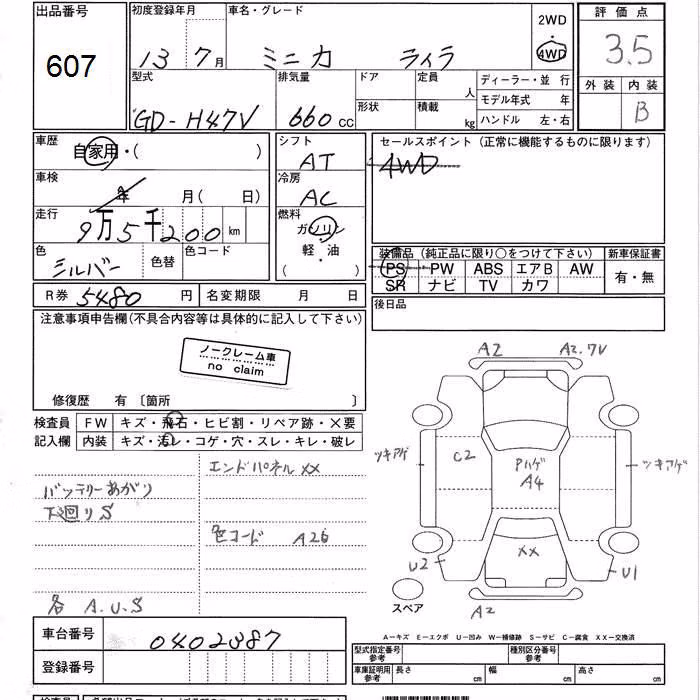 出品番号 初度登録年月 車名・グレード 2WD 評価点
607 13 7月 ミニカ ライラ 4WD 3.5
型式 排気量 ドア 定員 人 ディーラー・並行 外装 内装
GD-H47V 660CC 形状 積載 kg モデル年式 年 B
ハンドル 左・右
車歴 自家用・( ) シフト AT セールスポイント(正常に機能するものに限ります)
4WD
車検 年 月( 日) 冷房 AC
走行 9万5千200km 燃料 ガソリン
軽・油
( )
色 シルバー 色替 色コード 装備品(純正品に限り○をつけて下さい) 新車保証書
PS PW ABS エアB AW 有・無
SR ナビ TV カワ
R券 5480円 名変期限 月 日 後日品
注意事項申告欄(不具合内容等は具体的に記入して下さい)
ノークレーム車
no claim
修復歴 有〔箇所 〕
検査員 FW キズ・飛石・ヒビ割・リペア跡・×要
記入欄 内装 キズ・汚レ・コゲ・穴・スレ・キレ・破レ
エンドパネルXX
バッテリーあがり
下廻りS
色コード A26
各 A.U.S
A2 A2.7V
ツキアゲ C2 Pハゲ ツキアゲ
A4
XX
U2 U1
スペア A2
車台番号 0402387
登録番号
A-キズ E-エクボ U-凹み W-補修跡 S-サビ C-腐食 XX-交換済
型式指定番号 参考 種別区分番号 参考
車庫証明用 参考 長さ cm 幅 cm 高さ cm